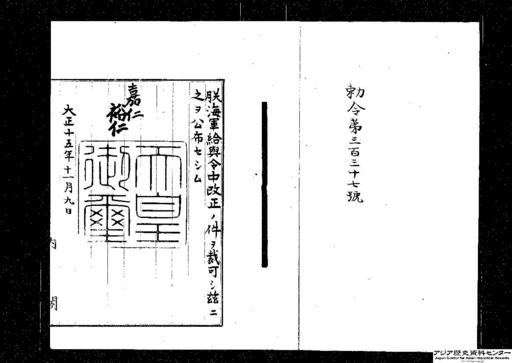 勅令第三百三十七號
朕海軍給與令中改正ノ件ヲ裁可シ茲ニ
之ヲ公布セシム
嘉仁
裕仁
天皇
御璽
大正十五年十一月九日
内閣
アジア歴史資料センター
Japan Center for Asian Historical Records